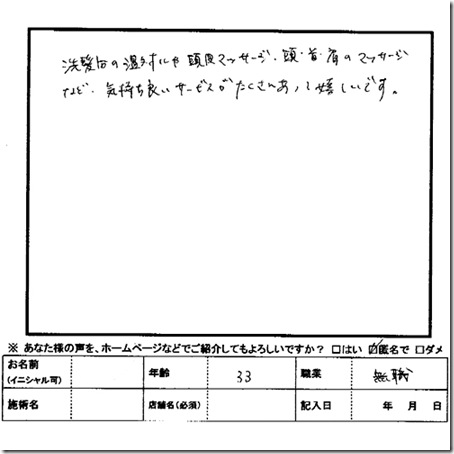 洗髪台の温タオルや頭皮マッサージ、頭・首・肩のマッサージ
など、気持ち良いサービスがたくさんあって嬉しいです。
※ あなた様の声を、ホームページなどでご紹介してもよろしいですか? □はい ☑匿名で □ダメ
お名前 年齢 33 職業 無職
(イニシャル可)
施術名 店舗名(必須) 記入日 年 月 日